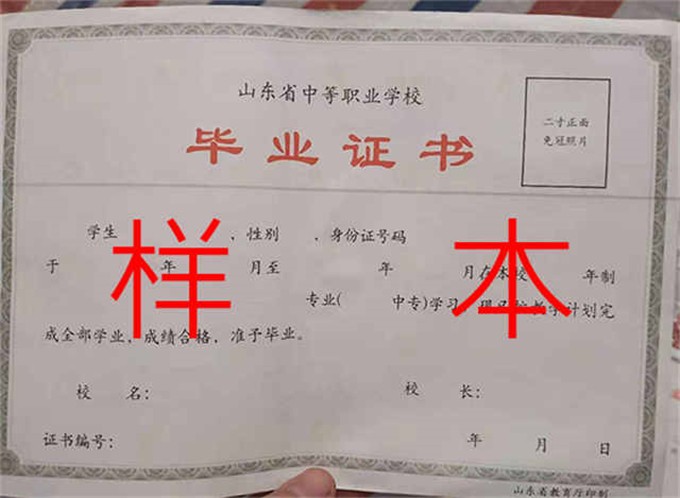 山东省中等职业学校
二寸正面
免冠照片
毕业证书
学生 ,性别 ,身份证号码
于 年 月至 年 月在本校 年制
专业( 中专)学习, 教学计划完
成全部学业,成绩合格,准予毕业。
样本
校 名: 校 长:
证书编号: 年 月 日
山东省教育厅印制